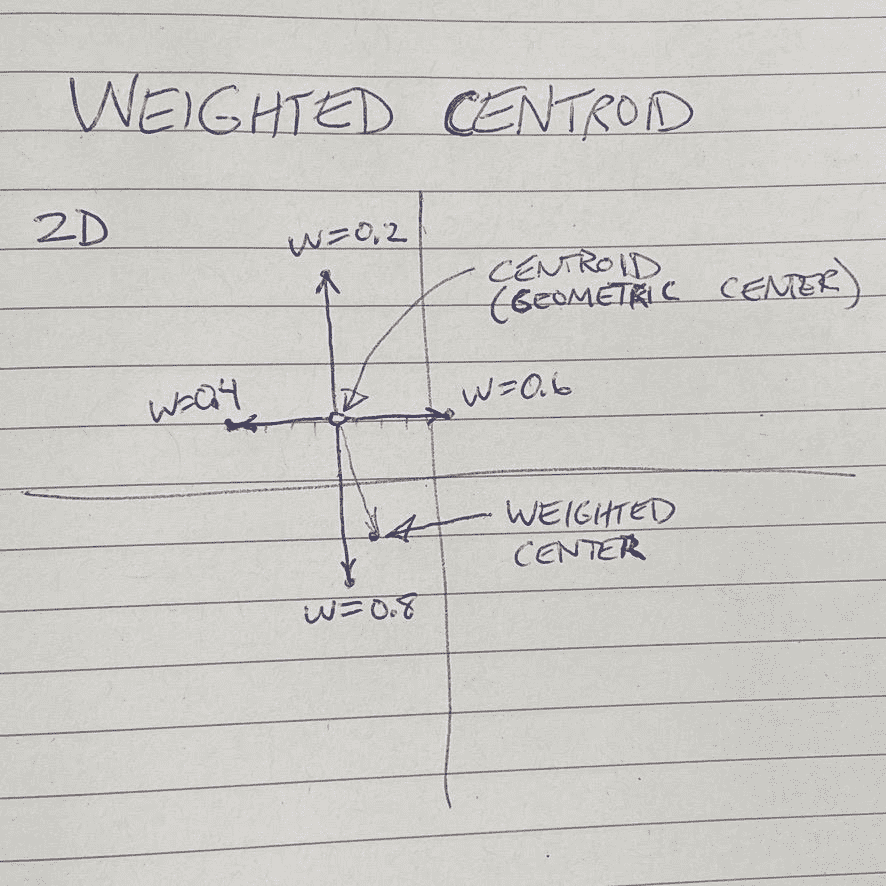 WEIGHTED CENTROID
2D
W=0.2
CENTROID
(GEOMETRIC CENTER)
W=0.4
W=0.6
WEIGHTED
CENTER
W=0.8